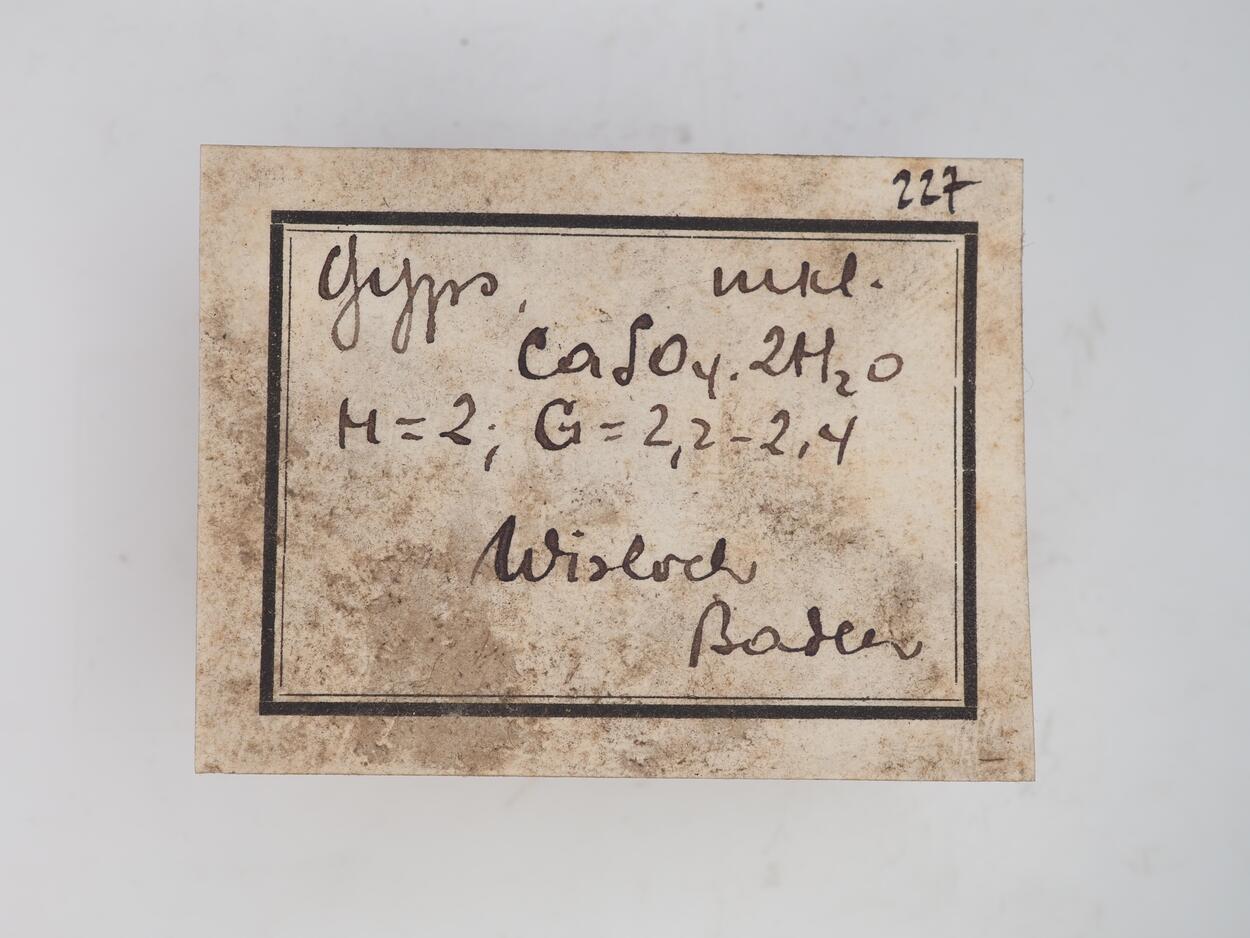 227
Gyps, mkl.
CaSO4. 2H2O
H=2; G=2,2-2,4
Wisloch
Baden